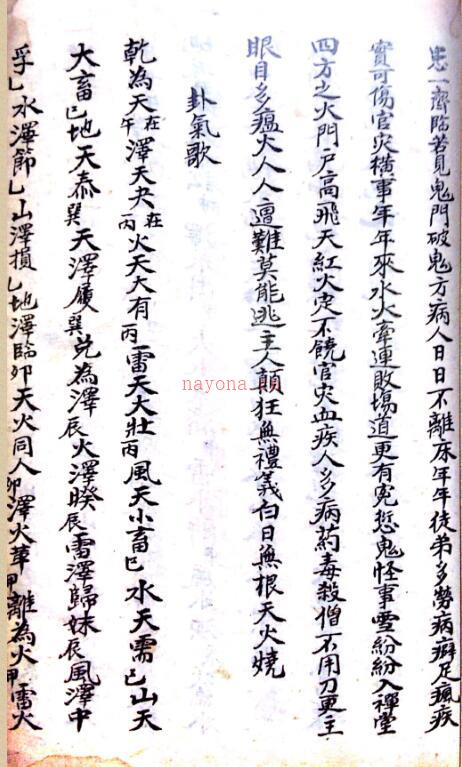 患一齊臨若見鬼門破鬼方病人日日不離床年年徒弟多勞病癖足瘋疾
實可傷官灾橫事年年來水火牽連敗場道更有冤愆鬼怪事雪紛紛入禪堂
四方之火門戶高飛天紅火定不饒官灾血疾人多病药毒殺僧不用刀更主
眼目多瘟火人人遭難莫能逃主人顛狂無禮義白日無根天火燒
卦氣歌
乾為天在午澤天夬在丙火天大有丙雷天大壯丙風天小畜巳水天需巳山天
大畜巳地天泰巽天澤履巽兌為澤辰火澤睽辰雷澤歸妹辰風澤中
孚乙水澤節乙山澤損乙地澤臨卯天火同人卯澤火革甲離為火甲雷火
nayona.